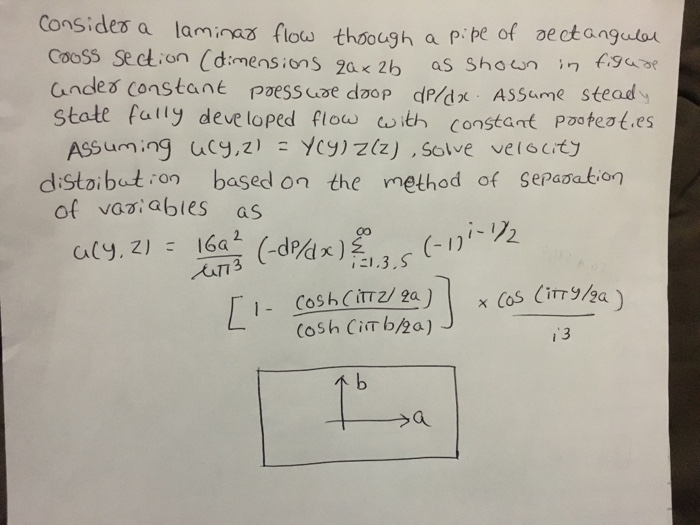 Consider a laminar flow through a pipe of rectangular
cross section (dimensions 2a x 2b as shown in figure
under constant pressure drop dP/dx. Assume steady
state fully developed flow with constant properties
Assuming u(y,z) = Y(y) Z(z), solve velocity
distribution based on the method of separation
of variables as
u(y, z) = 16a²/μπ³ (-dP/dx) ∞Σi=1,3,5 (-1)^i-1/2
[1 - cosh(iπz/2a)/cosh(iπb/2a)] x cos(iπy/2a)/i3
b
a